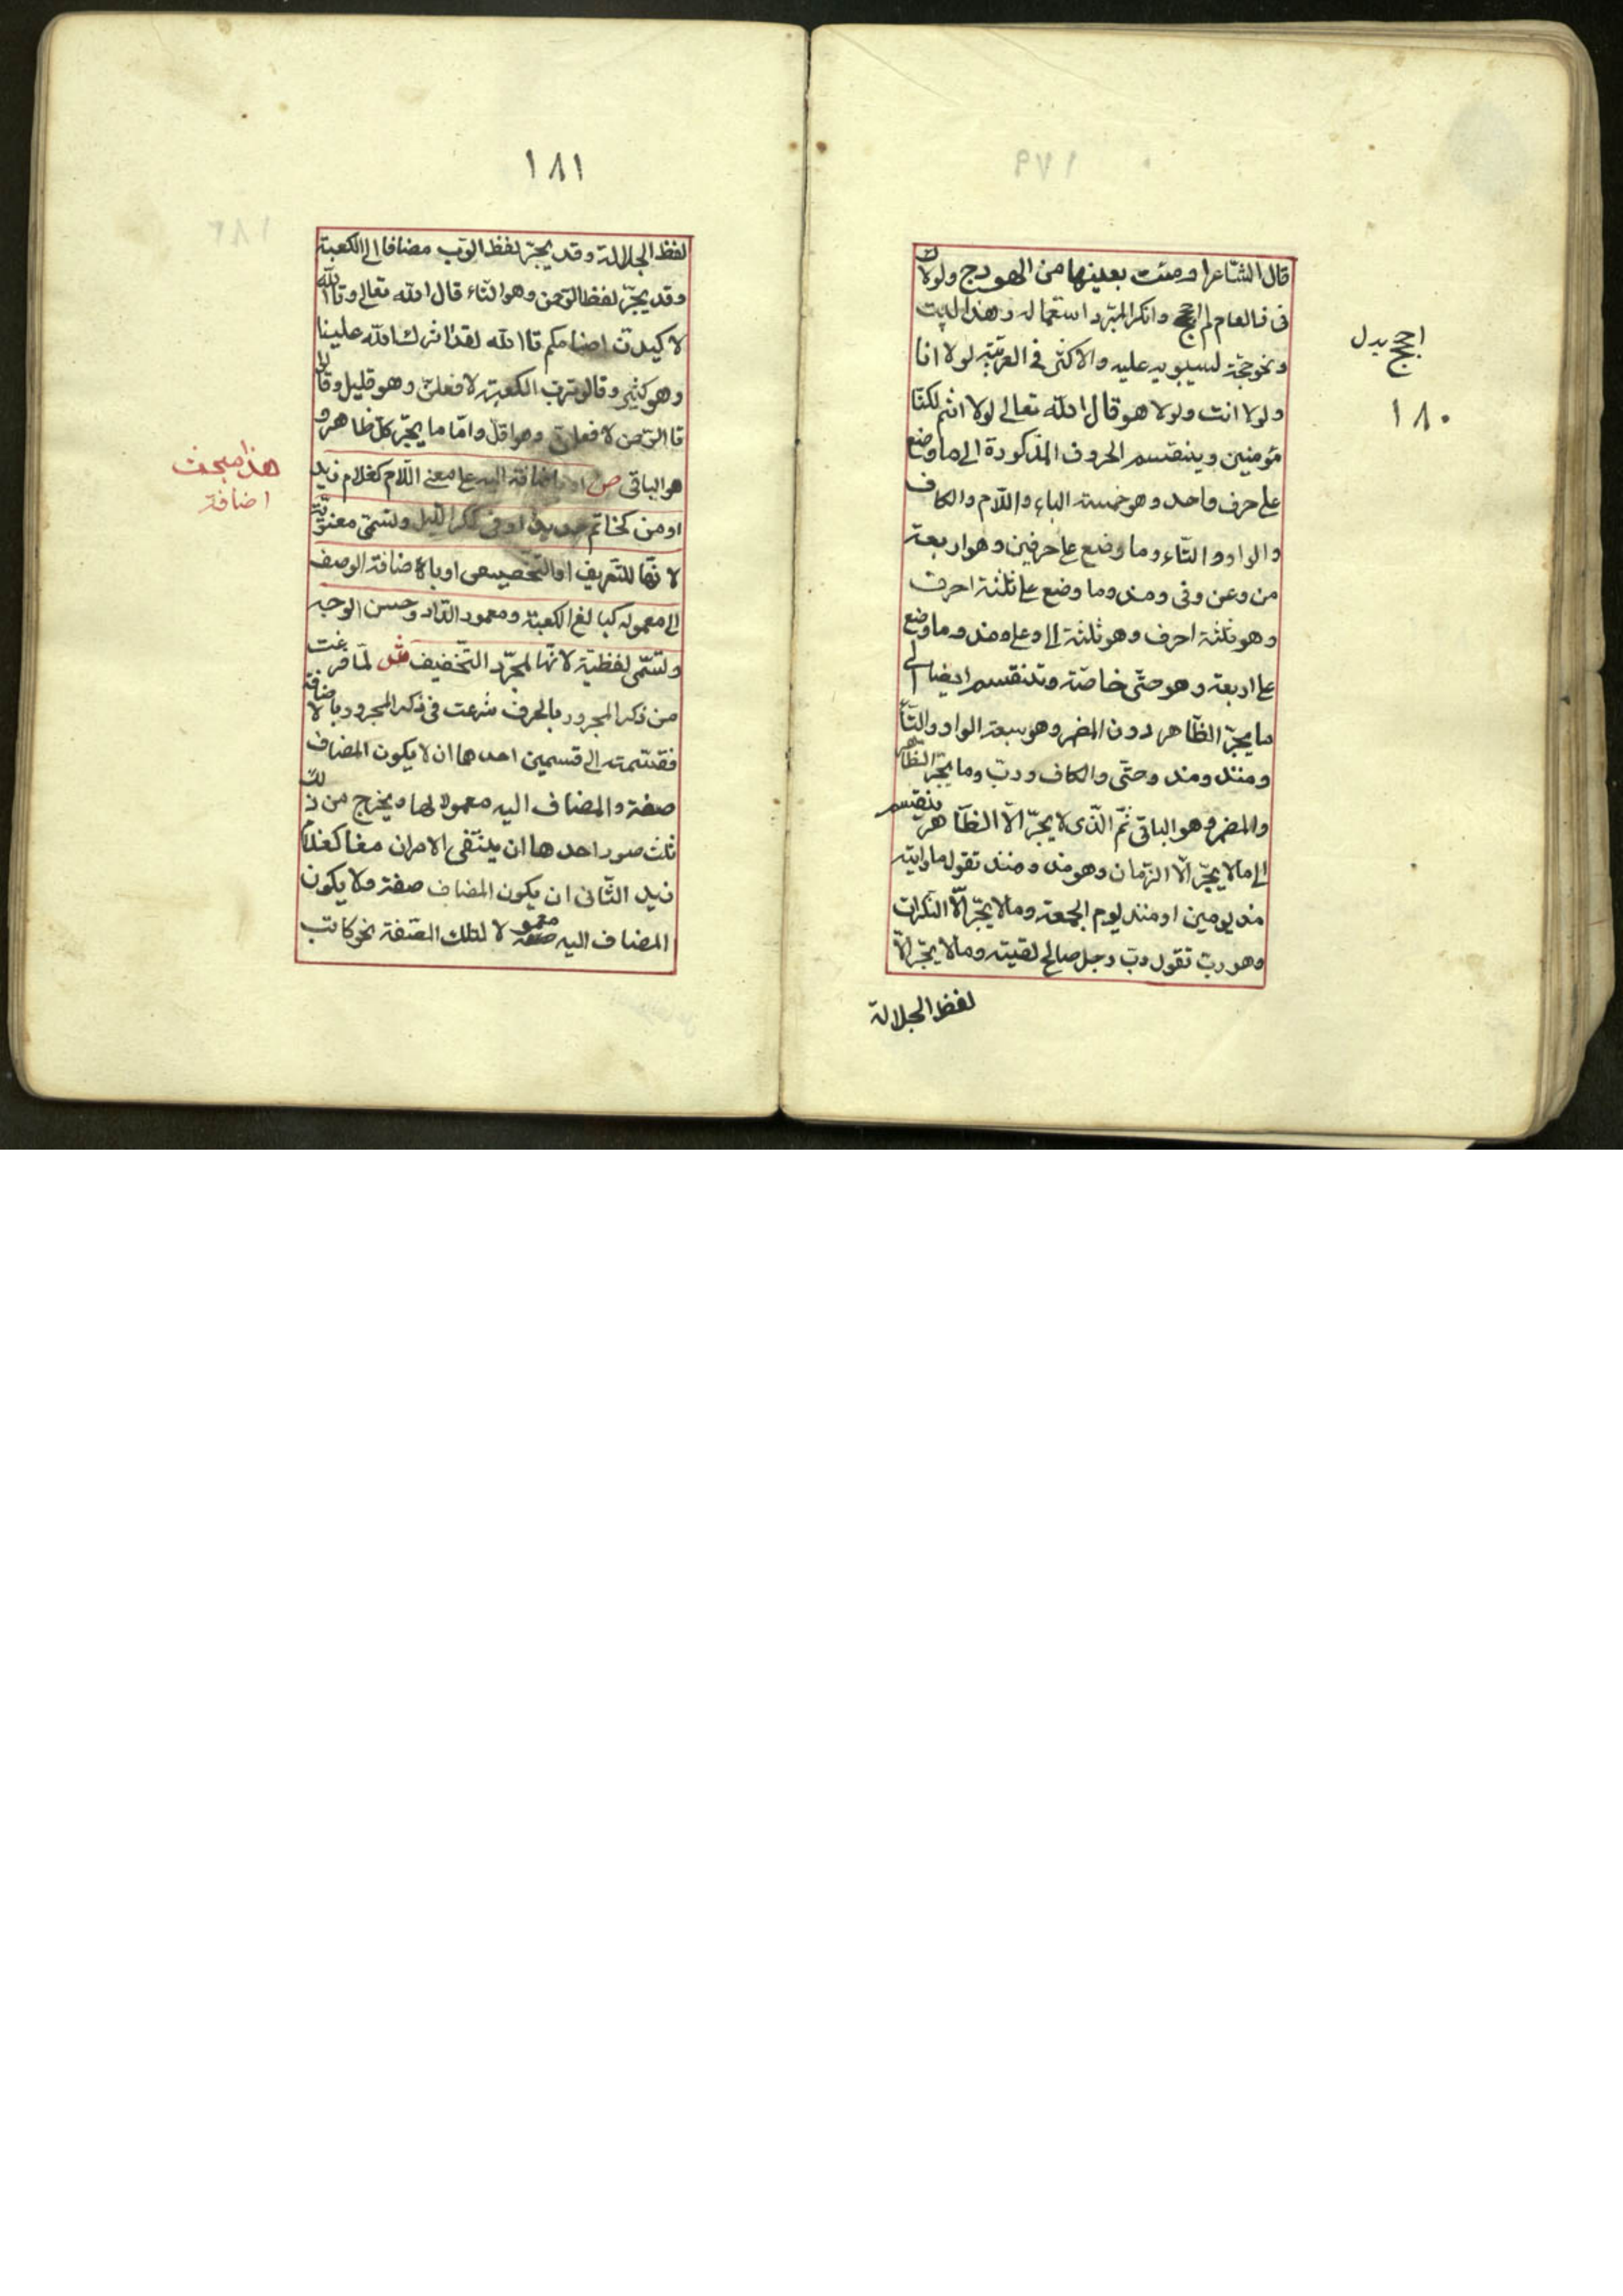 قال الشاعر اومئت بعينها من الهودج ولولاك
فى ذا العام لم احجج وانكر المبرد استعماله وهذا البيت
ونحوه حجة لسيبويه عليه والاكثر فى العربية لولا انا
ولولا انت ولولا هو قال الله تعالى لولا انتم لكنا
مؤمنين وينقسم الحروف المذكورة الى ما وضع
على حرف واحد وهو خمسة الباء واللام والكاف
والواو والتاء وما وضع على حرفين وهو اربعة
من وعن وفى ومذ وما وضع على ثلثة احرف
وهو ثلثة احرف وهو ثلثة الى وعلى ومنذ وما وضع
على اربعة وهو حتى خاصة وتنقسم ايضا الى
ما يجر الظاهر دون المضمر وهو سبعة الواو والتاء
ومنذ ومذ وحتى والكاف ورب وما يجر الظاهر
والمضمر وهو الباقى ثم الذى لا يجر الا الظاهر ينقسم
الى ما لا يجر الا الزمان وهو مذ ومنذ تقول ما رايته
مذ يومين او منذ يوم الجمعة وما لا يجر الا النكرات
وهو رب تقول رب رجل صالح لقيته وما لا يجر الا
لفظ الجلالة
احجج بدل
١٨٠
١٨١
لفظ الجلالة وقد يجر لفظ الرب مضافا الى الكعبة
وقد يجر لفظ الرحمن وهو التاء قال الله تعالى وتالله
لاكيدن اصنامكم تاالله لقد اثرك الله علينا
وهو كثير وقالو ترب الكعبة لافعلن وهو قليل وقالو
تاالرحمن لافعلن وهو اقل واما ما يجر كل ظاهر و
هو الباقى ص او باضافة اليه على معنى اللام كغلام زيد
او من كخاتم حديد او فى كمكر الليل وتسمى معنوية
لانها للتعريف او التخصيص او باضافة الوصف
الى معموله كبالغ الكعبة ومعمور الدار وحسن الوجه
وتسمى لفظية لانها لمجرد التخفيف ش لما فرغت
من ذكر المجرور بالحرف شرعت فى ذكر المجرور بالاضافة
فقسمته الى قسمين احدها ان لا يكون المضاف
صفة والمضاف اليه معمولا لها ويخرج من ذلك
ثلث صور احدها ان ينتفى الامران معا كغلام
زيد الثانى ان يكون المضاف صفة ولا يكون
المضاف اليه معمولا لتلك الصفة نحو كاتب
هذا مبحث
اضافة